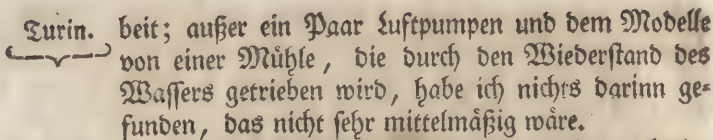 Turin. beit; außer ein Paar Luftpumpen und dem Modelle
von einer Mühle, die durch den Wiederstand des
Wassers getrieben wird, habe ich nichts darinn ge-
funden, das nicht sehr mittelmäßig wäre.